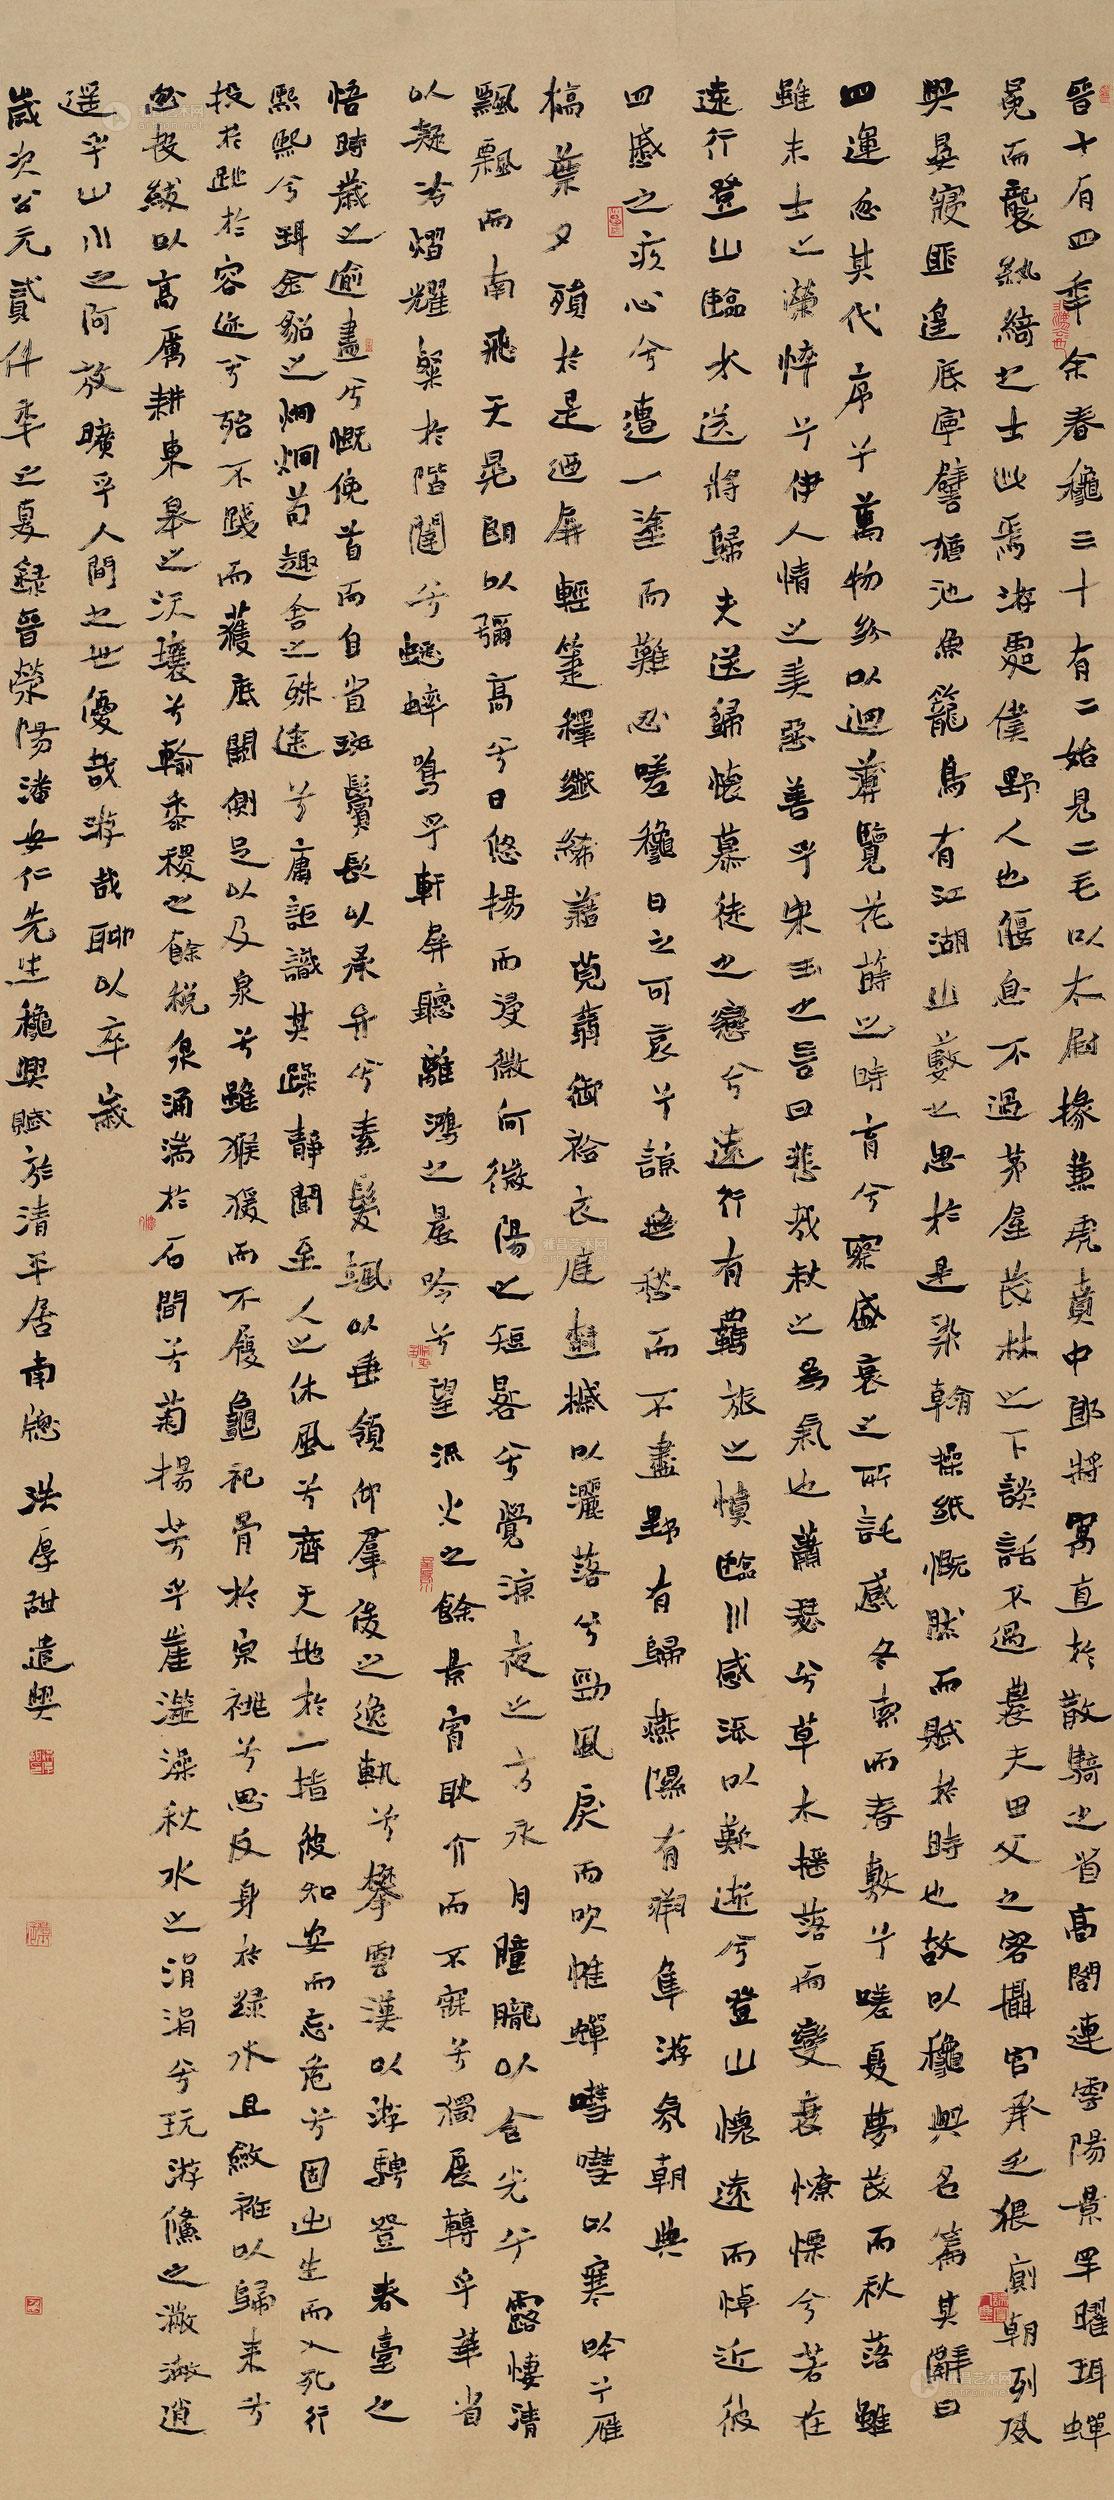 晉十有四年余春穐三十有二始見二毛以太尉掾兼虎賁中郎將寓直於散騎之省高閣連雲陽景罕曜珥蟬
冕而襲紈綺之士此焉游處僕野人也偃息不過茅屋茂林之下談話不過農夫田父之客攝官承乏猥廁朝列夙
興晏寢匪遑底寧譬猶池魚籠鳥有江湖山藪之思於是染翰操紙慨然而賦於時也故以穐興名篇其辭曰
四運忽其代序兮萬物紛以迴薄覽花蒔之時育兮察盛衰之所託感冬索而春敷兮嗟夏夢茂而秋落雖
雖末士之榮悴兮伊人情之美惡善乎宋玉之言曰悲哉秋之為氣也蕭瑟兮草木搖落而變衰憭慄兮若在
遠行登山臨水送將歸夫送歸懷慕徒之戀兮遠行有羈旅之憤臨川感流以歎逝兮登山懷遠而悼近彼
四慼之疚心兮遭一塗而難忍嗟穐日之可哀兮諒無愁而不盡野有歸燕隰有翔隼游氛朝興
槁葉夕殞於是迺屏輕箑釋纖絺藉莞蒻御袷衣庭樹摵以灑落兮勁風戾而吹帷蟬嘒嘒以寒吟兮雁
飄飄而南飛天晃朗以彌高兮日悠揚而浸微何微陽之短晷兮覺涼夜之方永月朣朧以含光兮露悽清
以凝冷熠耀粲於階闥兮蟋蟀鳴乎軒屏聽離鴻之晨吟兮望流火之餘景宵耿介而不寐兮獨展轉乎華省
悟時歲之遒盡兮慨俛首而自省斑鬢髟以承弁兮素髮颯以垂領仰羣俊之逸軌兮攀雲漢以游騁登春臺之
熙熙兮珥金貂之炯炯苟趣舍之殊塗兮庸詎識其躁靜聞至人之休風兮齊天地於一指彼知安而忘危兮固出生而入死行
投於趾於容迹兮殆不踐而獲底闕側足以及泉兮雖猴猨而不履龜祀骨於宗祧兮思反身於綠水且斂衽以歸來兮
忽投紱以高厲耕東皋之沃壤兮輸黍稷之餘稅泉涌湍於石間兮菊揚芳乎崖澨澡秋水之涓涓兮玩游鯈之潎潎逍
遥乎山川之阿放曠乎人間之世優哉游哉聊以卒歲
歲次公元貳仟年之夏録晉滎陽潘安仁先生穐興賦於清平居南窗 洪厚甜遣興